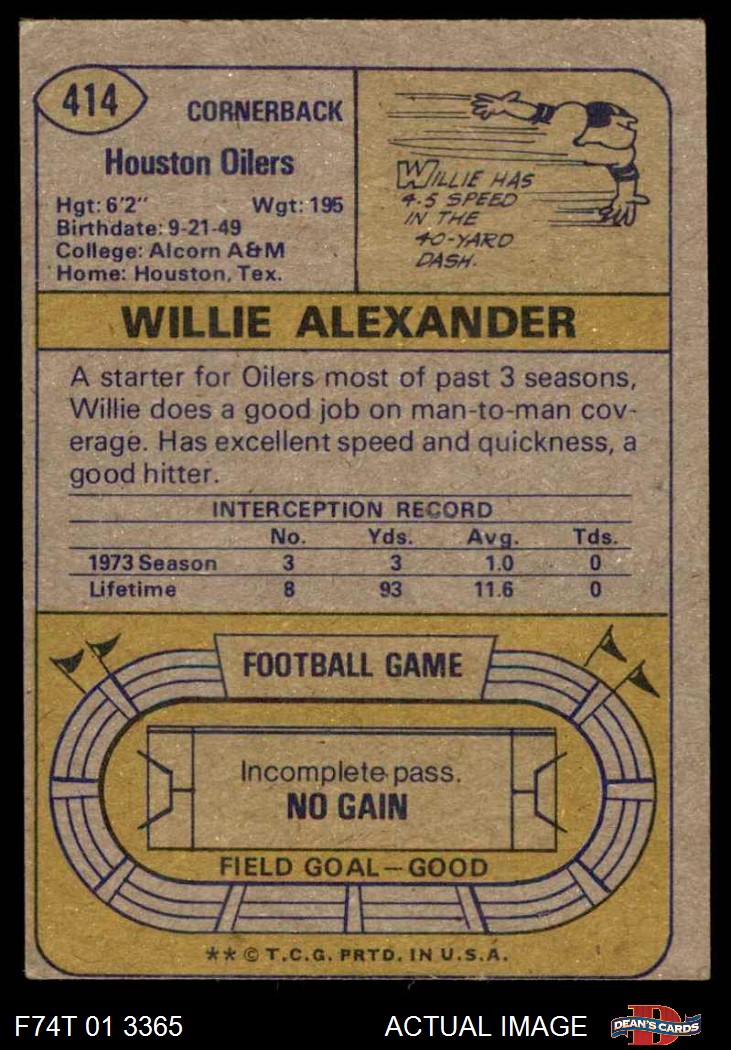 414
CORNERBACK
Houston Oilers
Hgt: 6'2" Wgt: 195
Birthdate: 9-21-49
College: Alcorn A&M
Home: Houston, Tex.
WILLIE HAS
4.5 SPEED
IN THE
40-YARD
DASH.
WILLIE ALEXANDER
A starter for Oilers most of past 3 seasons,
Willie does a good job on man-to-man cov-
erage. Has excellent speed and quickness, a
good hitter.
INTERCEPTION RECORD
No. Yds. Avg. Tds.
1973 Season 3 3 1.0 0
Lifetime 8 93 11.6 0
FOOTBALL GAME
Incomplete pass.
NO GAIN
FIELD GOAL—GOOD
** © T.C.G. PRTD. IN U.S.A.
F74T 01 3365 ACTUAL IMAGE
D
DEAN'S CARDS